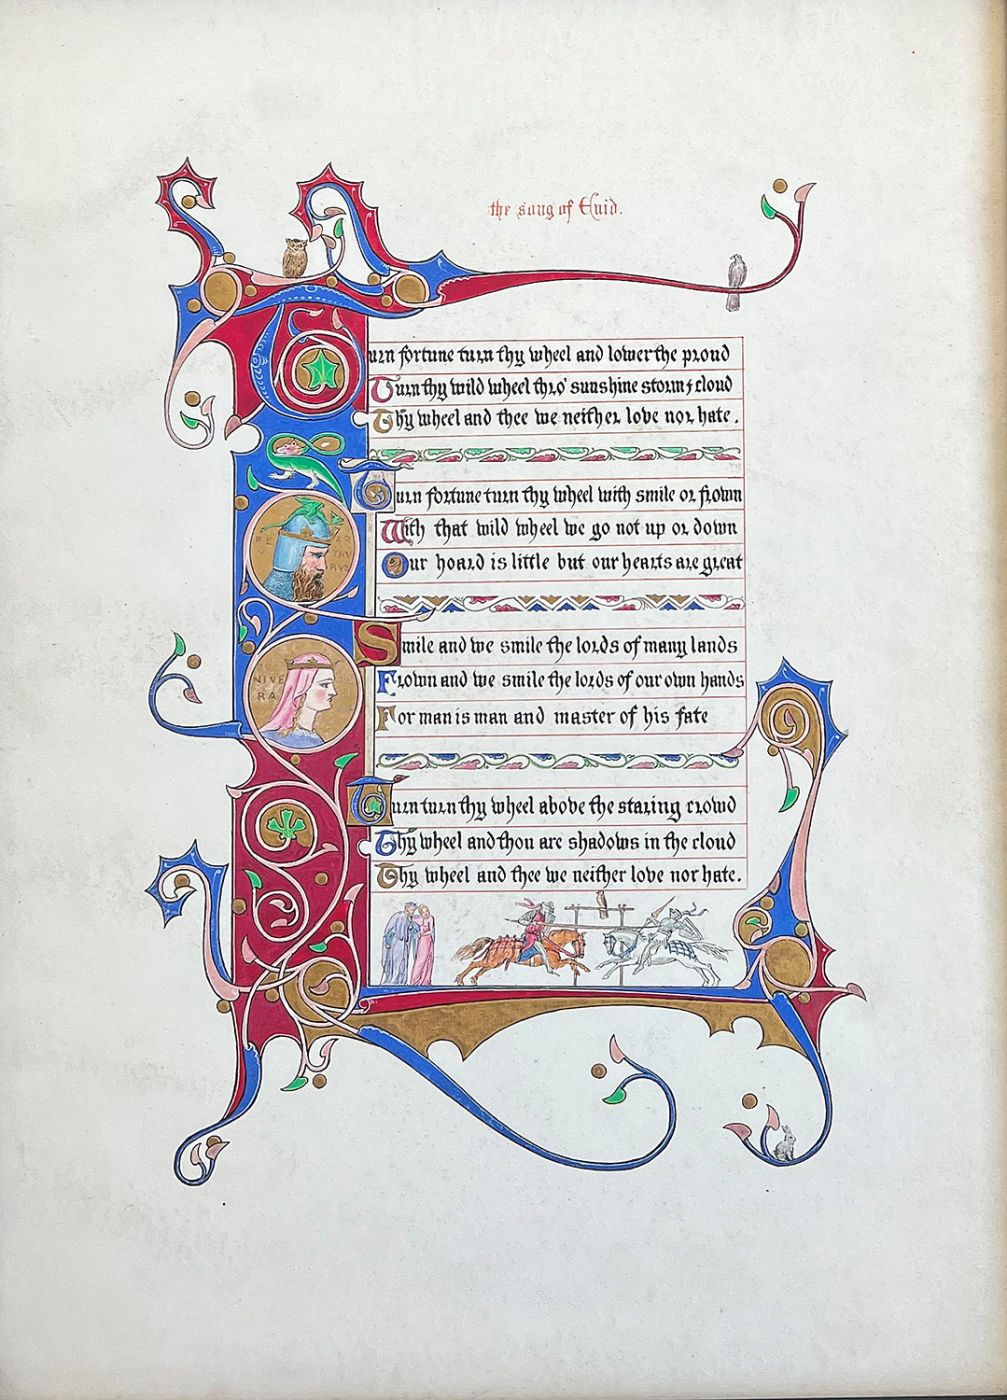 the song of Enid.
Turn fortune turn thy wheel and lower the proud
Turn thy wild wheel thro' sunshine storm & cloud
Thy wheel and thee we neither love nor hate.
Turn fortune turn thy wheel with smile or frown
With that wild wheel we go not up or down
Our hoard is little but our hearts are great
REX
ARTHU
RVS
NIVE
RA
Smile and we smile the lords of many lands
Frown and we smile the lords of our own hands
For man is man and master of his fate
Turn turn thy wheel above the staring crowd
Thy wheel and thou are shadows in the cloud
Thy wheel and thee we neither love nor hate.